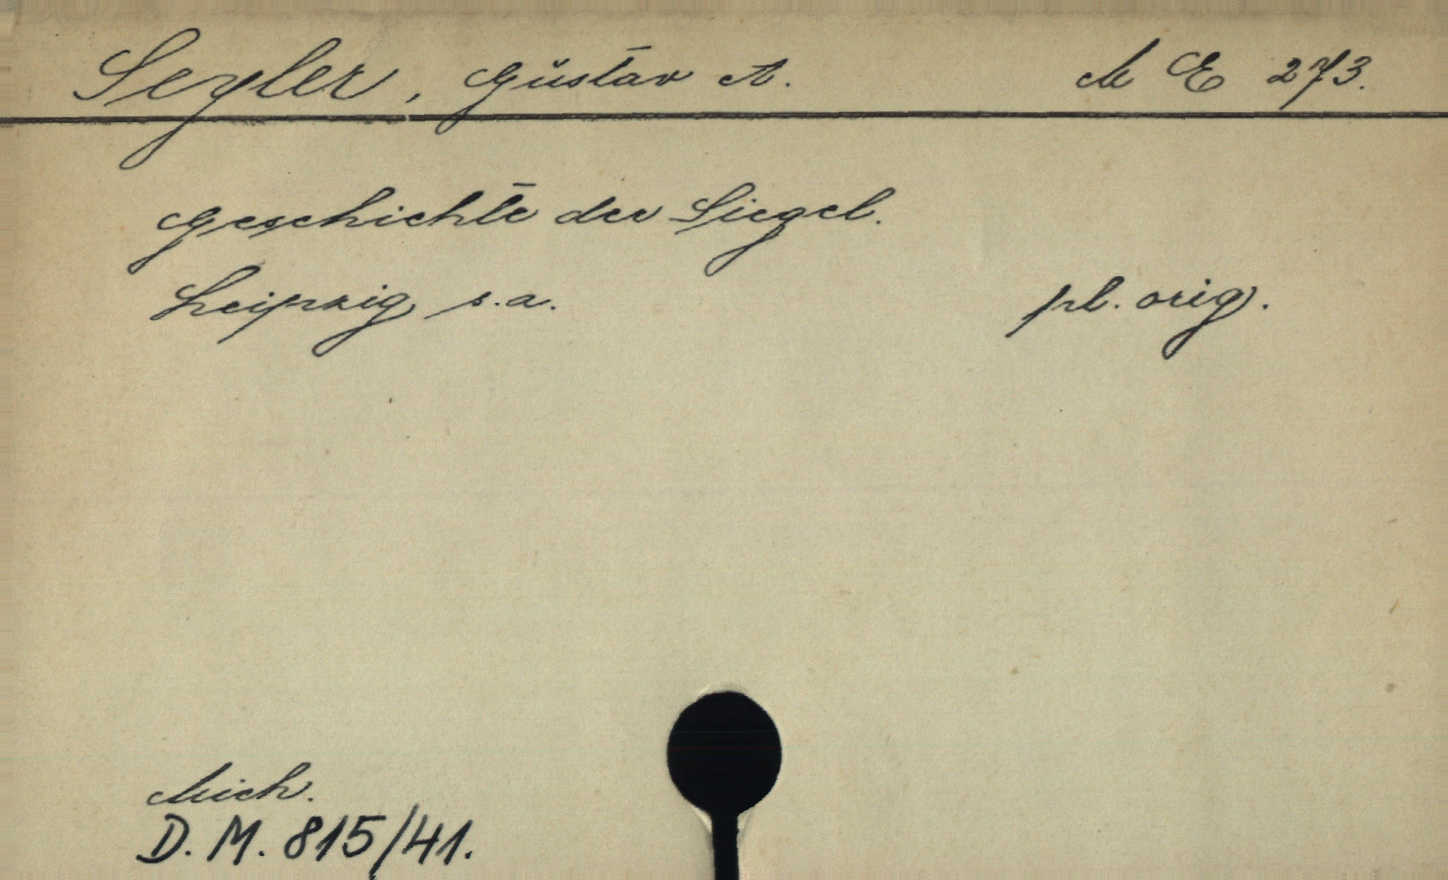 Seyler, Gustav A. M E 273.
Geschichte der Siegel.
Leipzig s.a. pl. orig.
Mich.
D. M. 815/41.